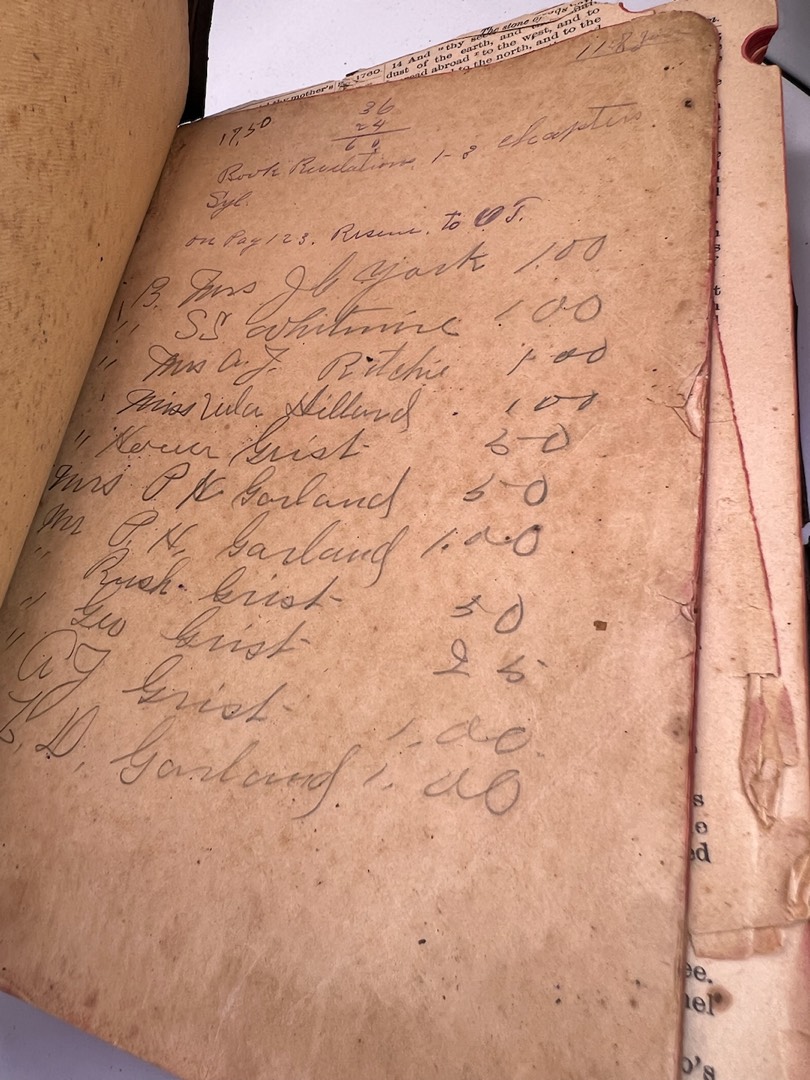 The stone
14 And "thy
dust of the earth, and
abroad to the west, and to
to the north, and to the
thy mother's
1760
17,50
36
24
60
Book Revelations 1-3 chapters
Syl.
on Pag 123. to OT.
B. Mrs J C York 1.00
" SS Whitmire 1 00
" Mrs A.J. Ritchie 1.00
Miss Lula Hilland. 1 00
" Grist 50
Mrs P H Garland 50
Mr P. H. Garland 1.00
" Rush Grist 50
" Geo Grist 25
" A J Grist 1.00
D. Garland 1.00
s
e
ed
ee.
nel
o's